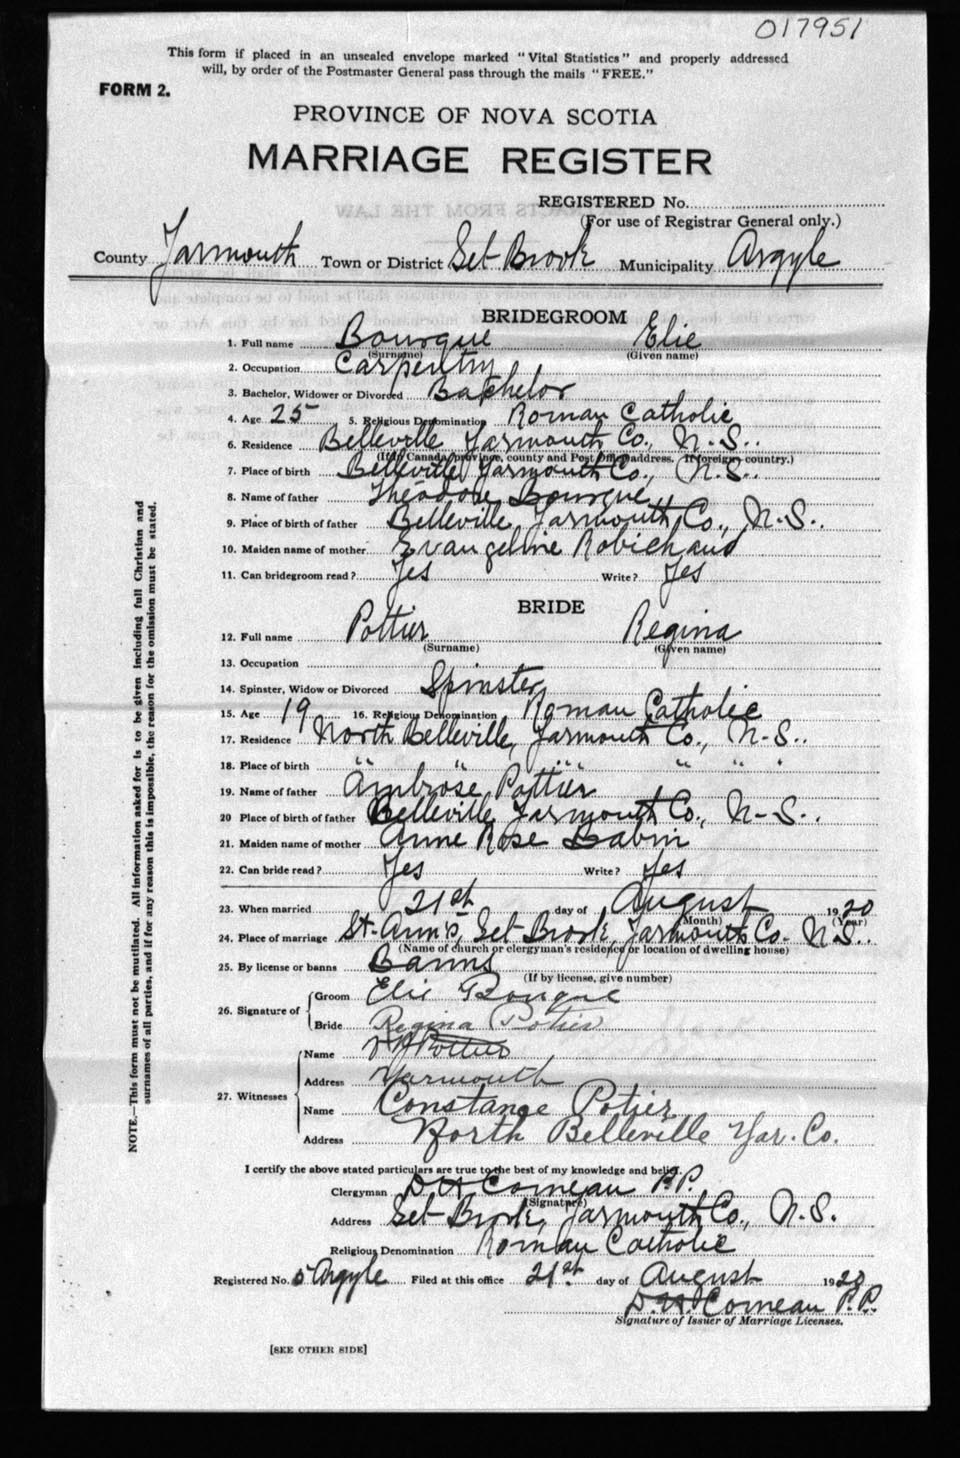 017951
This form if placed in an unsealed envelope marked "Vital Statistics" and properly addressed
will, by order of the Postmaster General pass through the mails "FREE."
FORM 2.
PROVINCE OF NOVA SCOTIA
MARRIAGE REGISTER
REGISTERED No.
(For use of Registrar General only.)
County Yarmouth Town or District Eel Brook Municipality Argyle
BRIDEGROOM
1. Full name Bourque Elie
(Surname) (Given name)
2. Occupation Carpentry
3. Bachelor, Widower or Divorced Bachelor
4. Age 25 5. Religious Denomination Roman Catholic
6. Residence Belleville Yarmouth Co., N.S..
(If in Canada, province, county and Post Office address. If foreign, country.)
7. Place of birth Belleville, Yarmouth Co., N.S..
8. Name of father Théodore Bourque
9. Place of birth of father Belleville, Yarmouth Co., N.S..
10. Maiden name of mother Evangeline Robichaud
11. Can bridegroom read? Yes Write? Yes
BRIDE
12. Full name Pottier Regina
(Surname) (Given name)
13. Occupation
14. Spinster, Widow or Divorced Spinster
15. Age 19 16. Religious Denomination Roman Catholic
17. Residence North Belleville, Yarmouth Co., N.S..
18. Place of birth " " " " " "
19. Name of father Ambrose Pottier
20 Place of birth of father Belleville, Yarmouth Co., N.S..
21. Maiden name of mother Anne Rose Babin
22. Can bride read? Yes Write? Yes
23. When married 21st day of August 1920
(Month) (Year)
24. Place of marriage St. Ann's, Eel Brook, Yarmouth Co. N.S..
(Name of church or clergyman's residence or location of dwelling house)
25. By license or banns Banns
(If by license, give number)
26. Signature of Groom Elie Bourque
Bride Regina Potier
27. Witnesses
Name Pottier
Address Yarmouth
Name Constance Potier
Address North Belleville Yar. Co.
I certify the above stated particulars are true to the best of my knowledge and belief.
Clergyman D H Comeau P.P.
(Signature)
Address Eel Brook, Yarmouth Co., N.S.
Religious Denomination Roman Catholic
Registered No. 5 Argyle Filed at this office 21st day of August 1920
D.H. Comeau P.P.
Signature of Issuer of Marriage Licenses.
[SEE OTHER SIDE]
NOTE.—This form must not be mutilated. All information asked for is to be given including full Christian and
surnames of all parties, and if for any reason this is impossible, the reason for the omission must be stated.